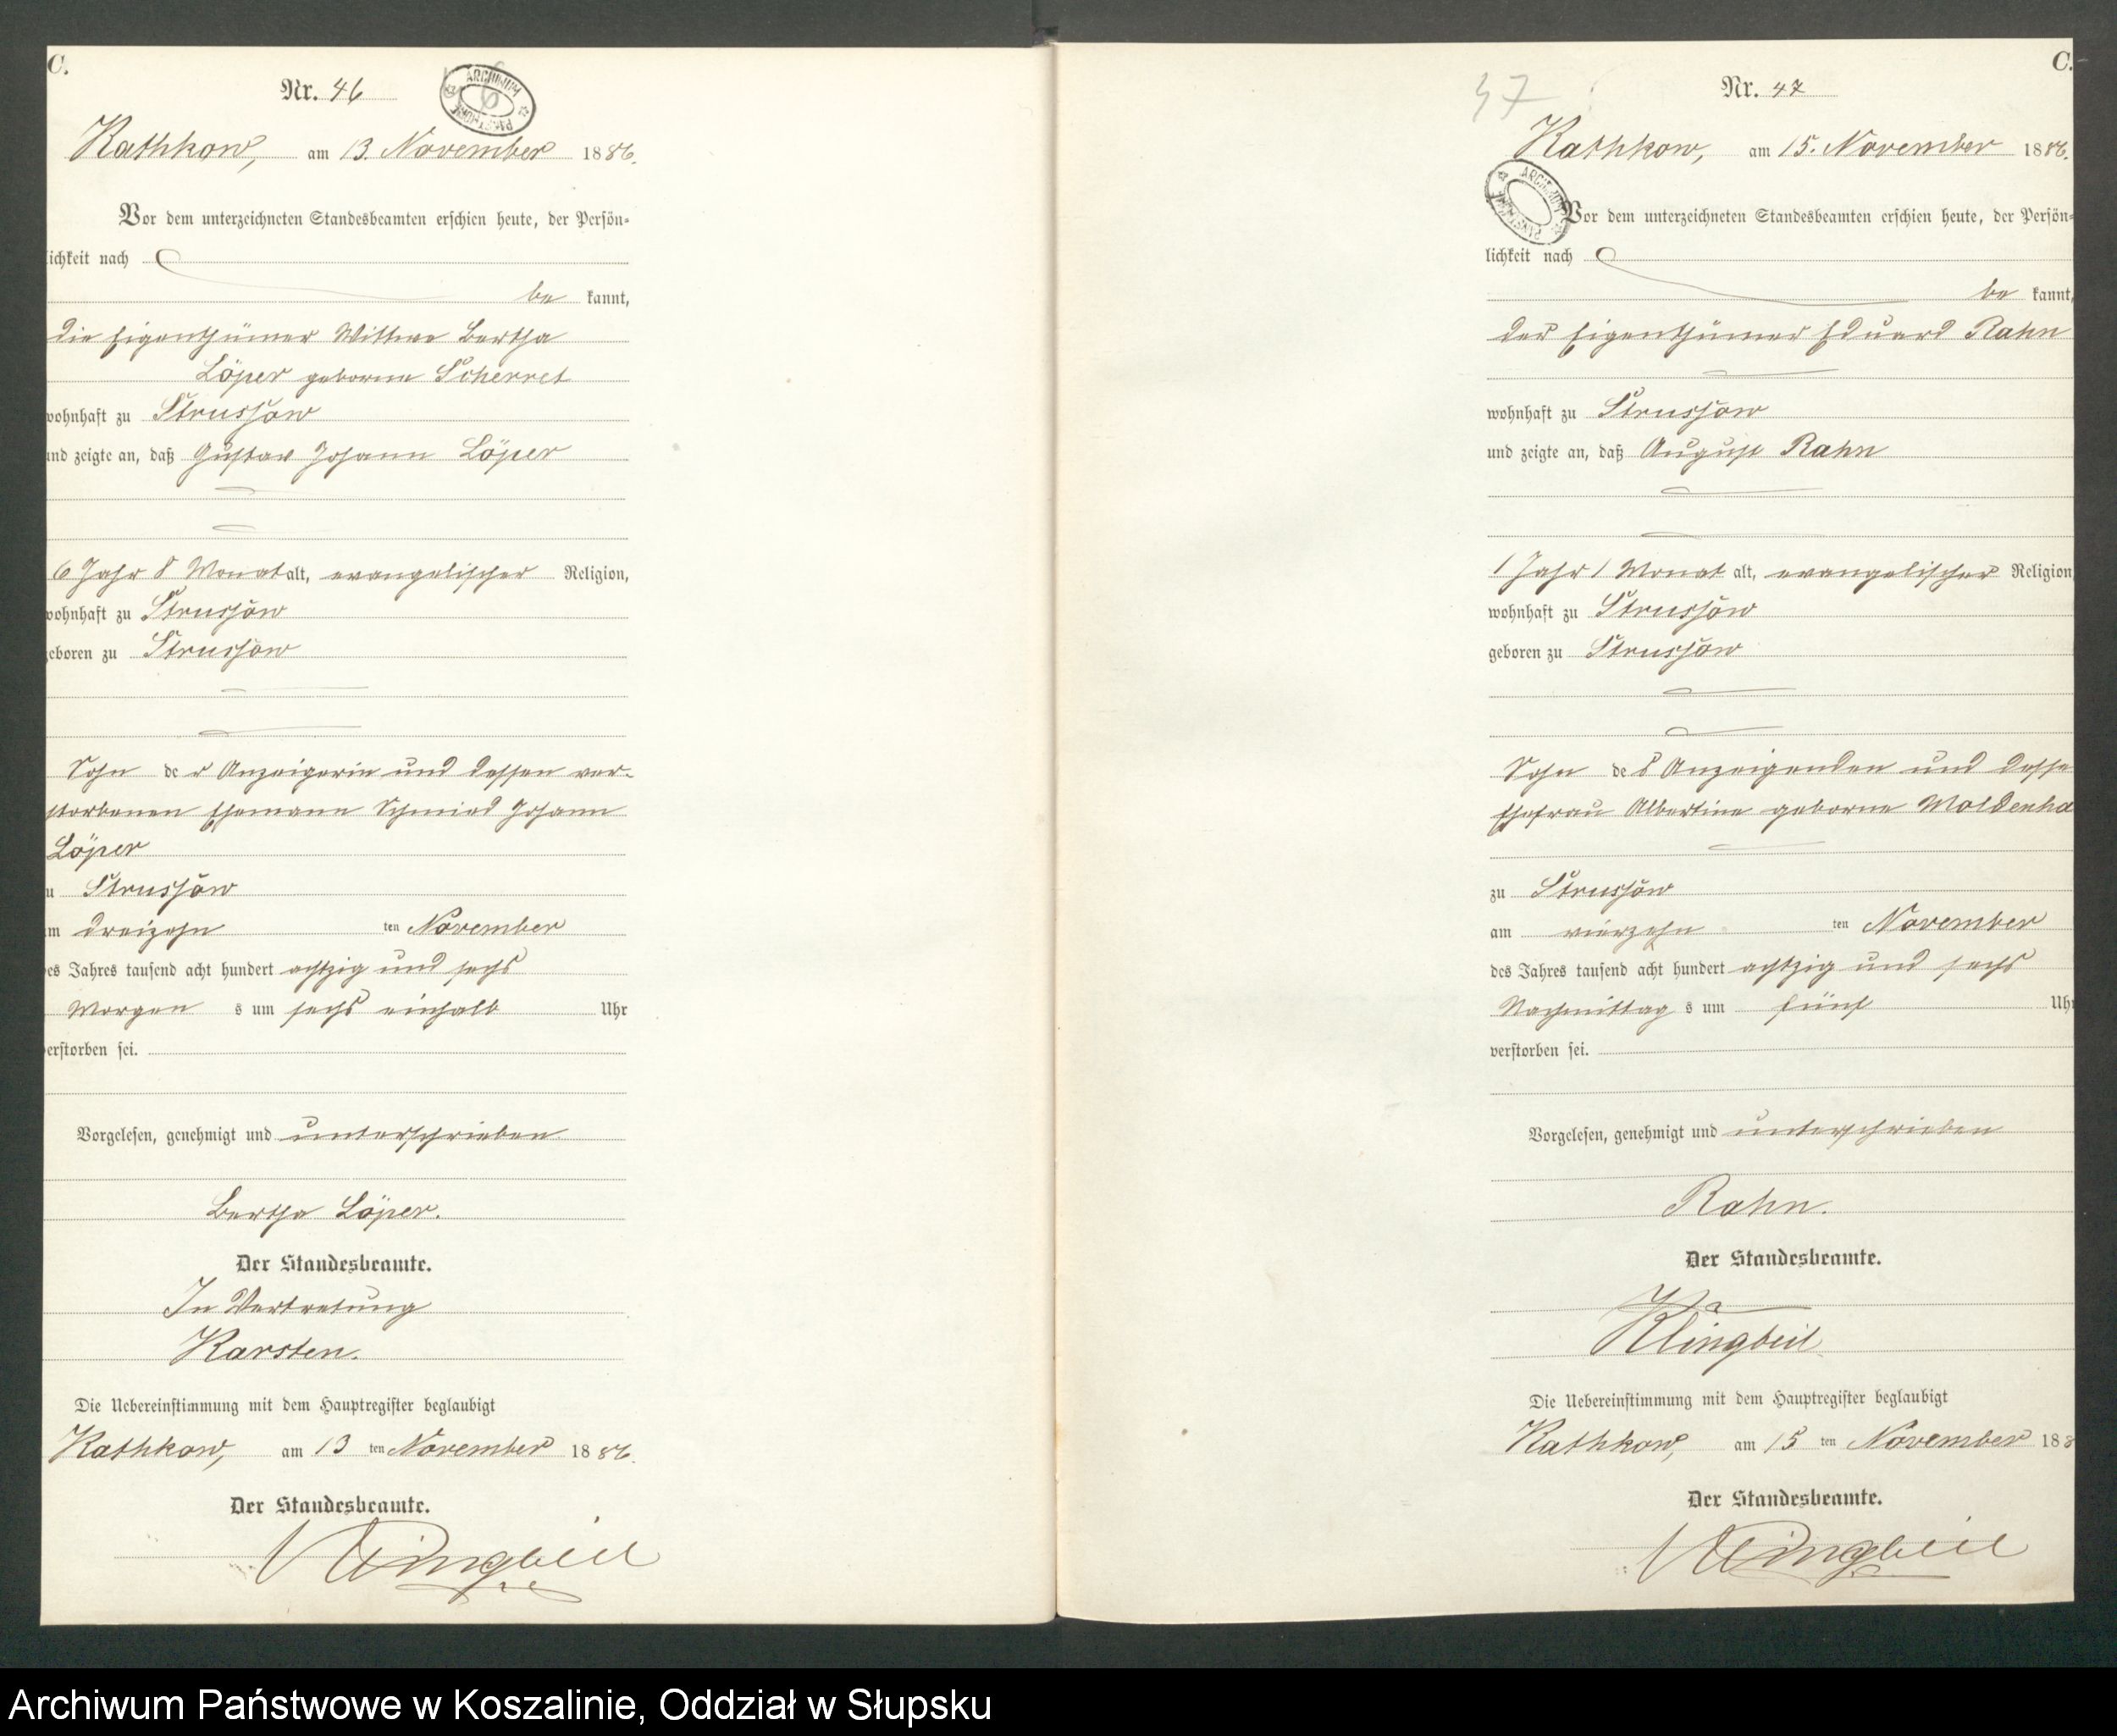 C.
Nr. 46
ARCHIWUM PAŃSTWOWE
Kathkow, am 13. November 1886.
Vor dem unterzeichneten Standesbeamten erschien heute, der Persön=
lichkeit nach
be kannt,
die Eigenthümer Wittwe Bertha
Löper geborne Scherret
wohnhaft zu Strussow
und zeigte an, daß Gustav Johann Löper
6 Jahr 8 Monat alt, evangelischer Religion,
wohnhaft zu Strussow
geboren zu Strussow
Sohn der Anzeigerin und dessen ver-
storbenen Ehemann Schmied Johann
Löper
zu Strussow
am dreizehn ten November
des Jahres tausend acht hundert achtzig und sechs
Morgen s um sechs einhalb Uhr
verstorben sei.
Vorgelesen, genehmigt und unterschrieben
Bertha Löper.
Der Standesbeamte.
In Vertretung
Karsten.
Die Uebereinstimmung mit dem Hauptregister beglaubigt
Kathkow, am 13 ten November 1886.
Der Standesbeamte.
Klingbeil
C.
47
Nr. 47
Kathkow, am 15. November 1886.
ARCHIWUM PAŃSTWOWE
Vor dem unterzeichneten Standesbeamten erschien heute, der Persön=
lichkeit nach
be kannt,
der Eigenthümer Eduard Rahn
wohnhaft zu Strussow
und zeigte an, daß August Rahn
1 Jahr 1 Monat alt, evangelischer Religion
wohnhaft zu Strussow
geboren zu Strussow
Sohn des Anzeigenden und desse
Ehefrau Albertine geborne Moldenha
zu Strussow
am vierzehn ten November
des Jahres tausend acht hundert achtzig und sechs
Nachmittag s um fünf Uhr
verstorben sei.
Vorgelesen, genehmigt und unterschrieben
Rahn.
Der Standesbeamte.
Klingbeil
Die Uebereinstimmung mit dem Hauptregister beglaubigt
Kathkow, am 15 ten November 188
Der Standesbeamte.
Klingbeil
Archiwum Państwowe w Koszalinie, Oddział w Słupsku